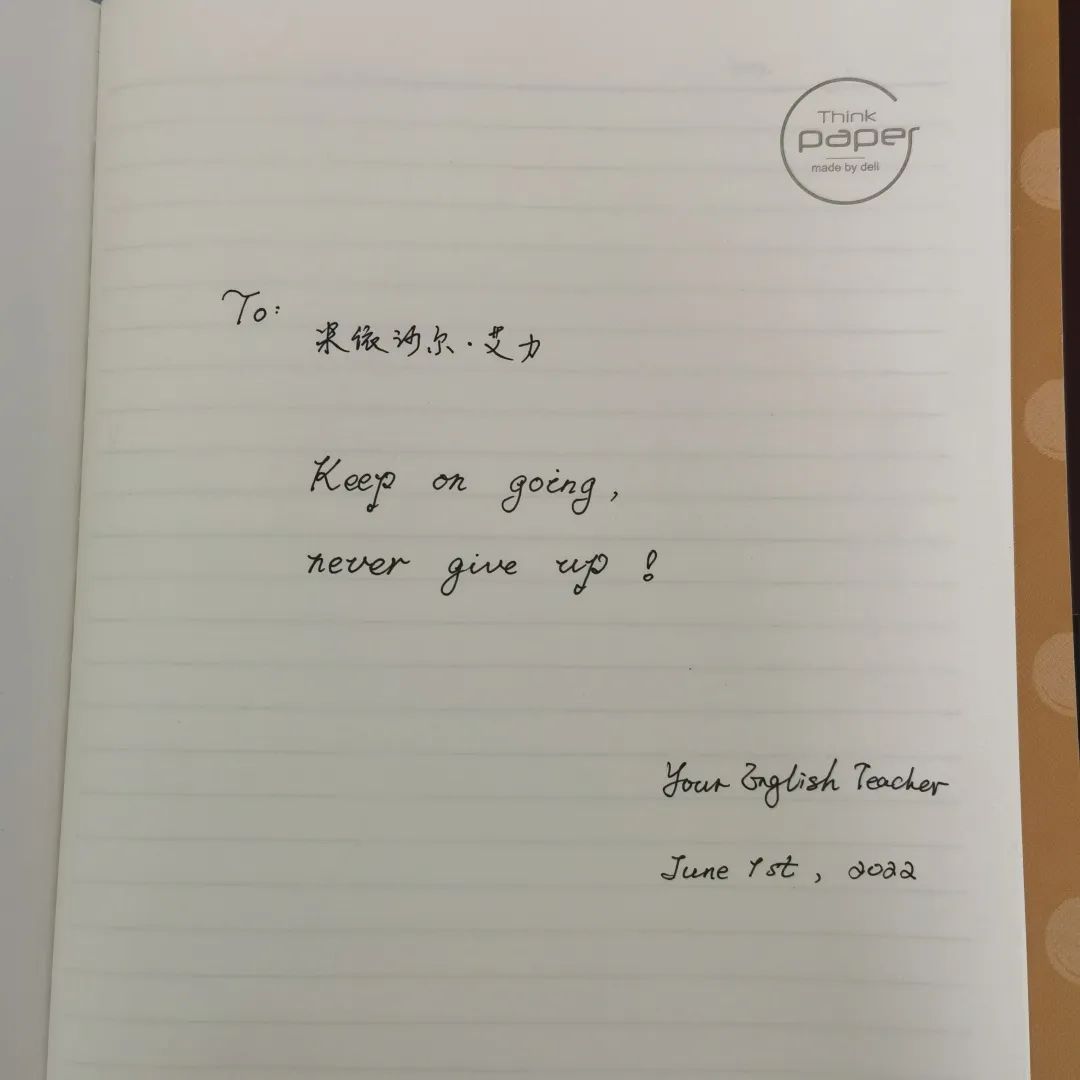 Think
paper
made by deli
To:
米依沙尔·艾力
Keep on going,
never give up!
Your English Teacher
June 1st, 2022